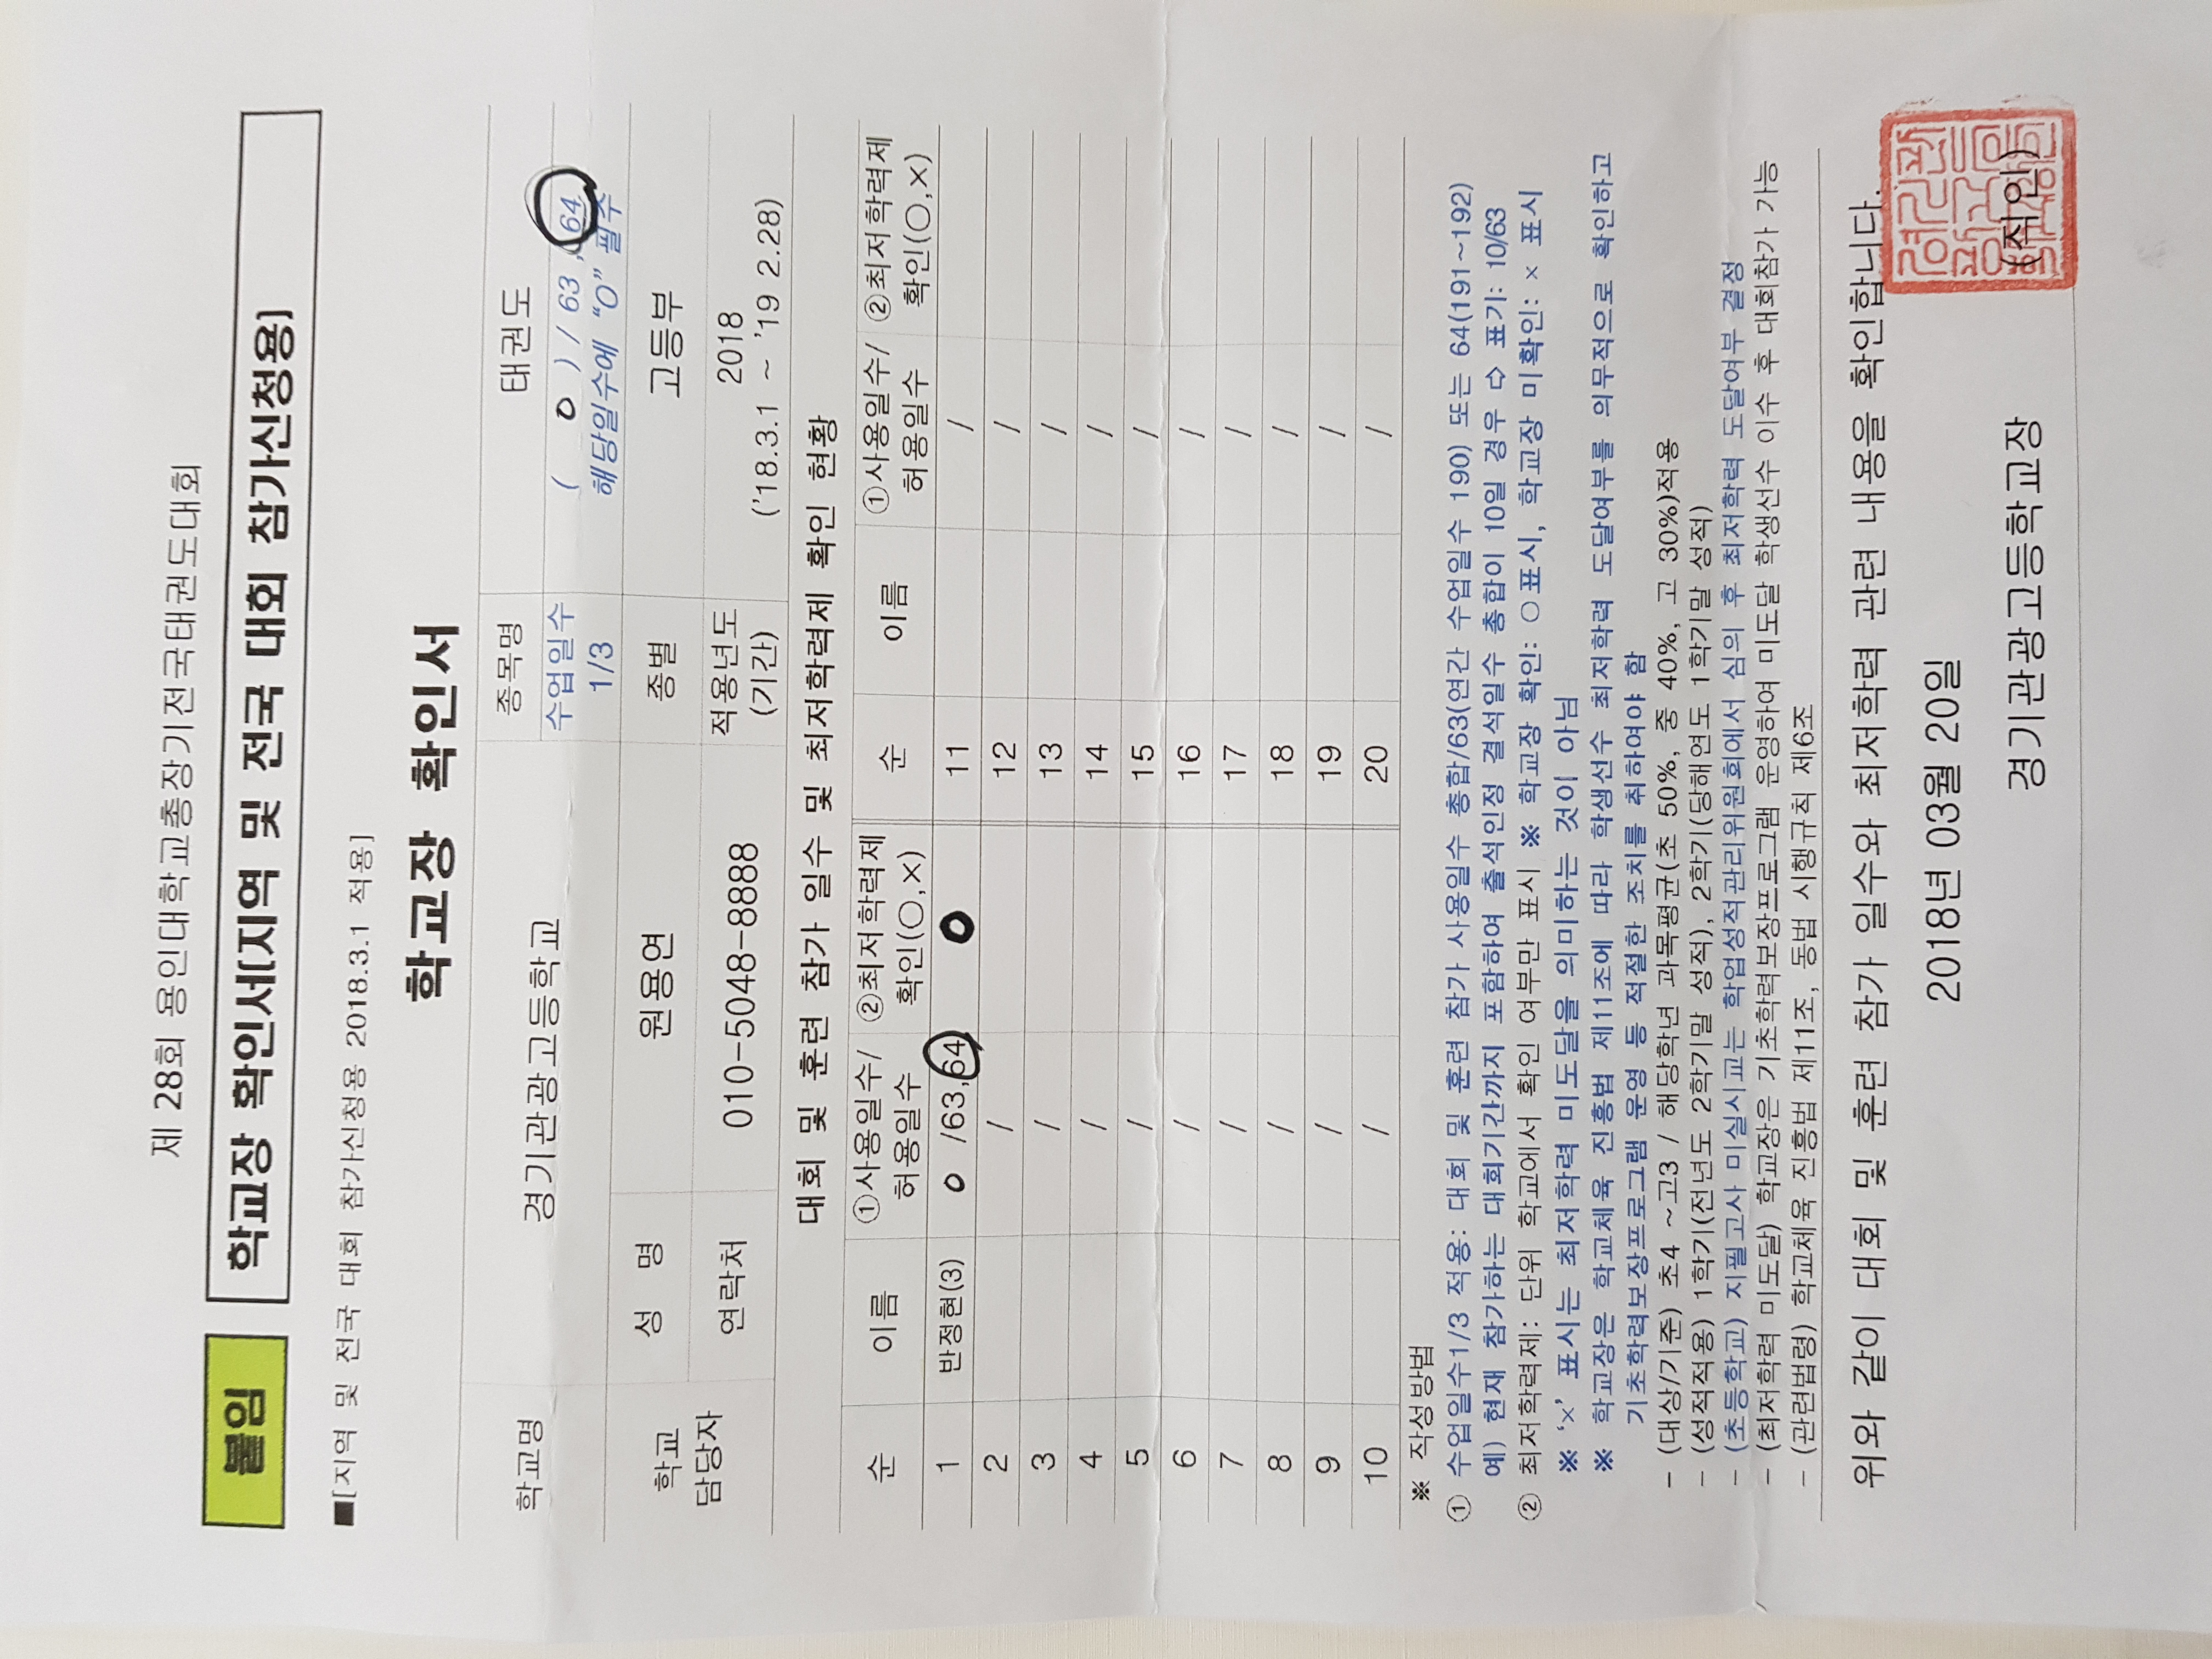 제 28회 용인대학교총장기전국태권도대회
붙임 학교장 확인서(지역 및 전국 대회 참가신청용)
■[지역 및 전국 대회 참가신청용 2018.3.1 적용]
학교장 확인서
학교명 경기관광고등학교 종목명 태권도
수업일수 1/3 ( 0 ) / 63 , 64
해당일수에 “O” 필수
학교 담당자 성 명 원용연 종별 고등부
연락처 010-5048-8888 적용년도 (기간) 2018
('18.3.1 ~ '19 2.28)
대회 및 훈련 참가 일수 및 최저학력제 확인 현황
순 이름 ①사용일수/허용일수 ②최저학력제 확인(○,×) 순 이름 ①사용일수/허용일수 ②최저학력제 확인(○,×)
1 반정현(3) 0 /63,64 O 11 /
2 / 12 /
3 / 13 /
4 / 14 /
5 / 15 /
6 / 16 /
7 / 17 /
8 / 18 /
9 / 19 /
10 / 20 /
※ 작성방법
① 수업일수1/3 적용: 대회 및 훈련 참가 사용일수 총합/63(연간 수업일수 190) 또는 64(191~192)
예) 현재 참가하는 대회기간까지 포함하여 출석인정 결석일수 총합이 10일 경우 ⇨ 표기: 10/63
② 최저학력제: 단위 학교에서 확인 여부만 표시 ※ 학교장 확인: ○표시, 학교장 미확인: × 표시
※ ‘×’ 표시는 최저학력 미도달을 의미하는 것이 아님
※ 학교장은 학교체육 진흥법 제11조에 따라 학생선수 최저학력 도달여부를 의무적으로 확인하고
기초학력보장프로그램 운영 등 적절한 조치를 취하여야 함
- (대상/기준) 초4 ~고3 / 해당학년 과목평균(초 50%, 중 40%, 고 30%)적용
- (성적적용) 1학기(전년도 2학기말 성적), 2학기(당해연도 1학기말 성적)
- (초등학교) 지필고사 미실시교는 학업성적관리위원회에서 심의 후 최저학력 도달여부 결정
- (최저학력 미도달) 학교장은 기초학력보장프로그램 운영하여 미도달 학생선수 이수 후 대회참가 가능
- (관련법령) 학교체육 진흥법 제11조, 동법 시행규칙 제6조
위와 같이 대회 및 훈련 참가 일수와 최저학력 관련 내용을 확인합니다.
2018년 03월 20일
경기관광고등학교장 (직인)